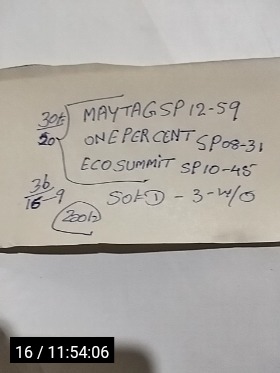 30t MAYTAGSP 12-59
20 ONEPERCENT SP08-31
ECOSUMMIT SP10-45
36
16-9
SOLD - 3-W/O
16 / 11:54:06